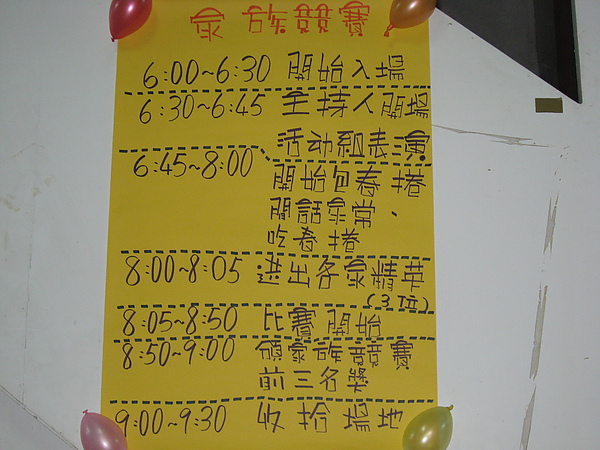 家族競賽
6:00~6:30 開始入場
6:30~6:45 主持人開場
活动組表演
6:45~8:00 開始包春捲
閒話家常、
吃春捲
8:00~8:05 选出各家精英
(3位)
8:05~8:50 比賽開始
8:50~9:00 頒家族競賽
前三名獎
9:00~9:30 收拾場地